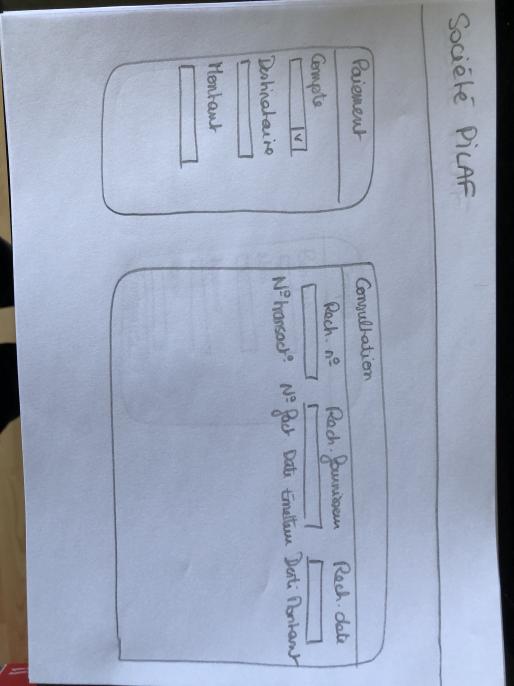 Société PiLAF
Paiement
Compte
Destinataire
Montant
Consultation
Rech. n° Rech. fournisseur Rech. date
N° transact° N° fact Date Emetteur Desti Montant